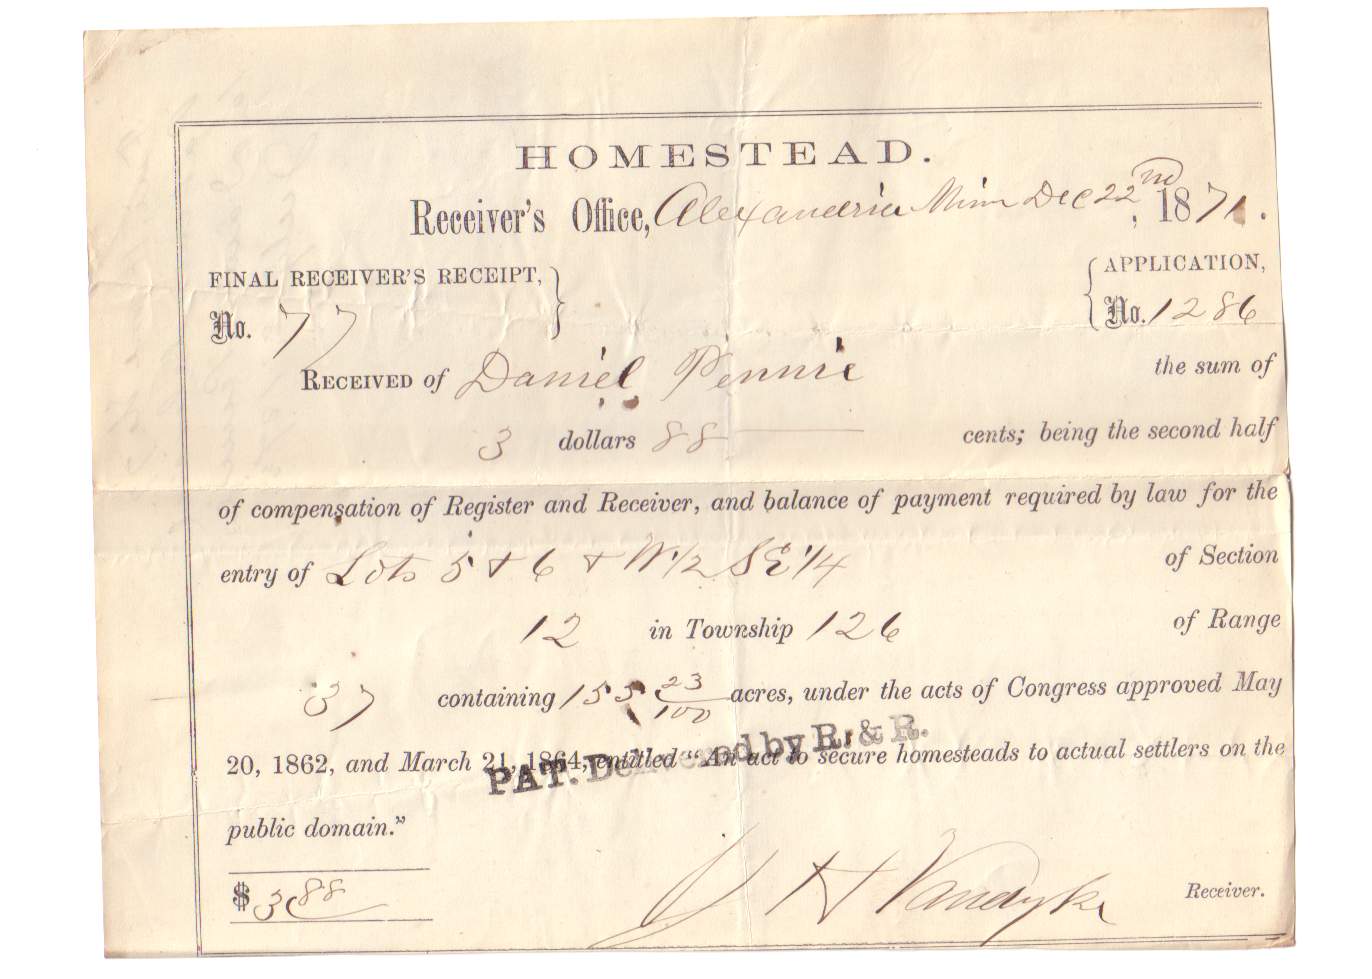 HOMESTEAD.
Receiver's Office, Alexandria Minn Dec 22nd, 1871.
FINAL RECEIVER'S RECEIPT, No. 77
APPLICATION, No. 1286
RECEIVED of Daniel Pennie the sum of
3 dollars 88 cents; being the second half
of compensation of Register and Receiver, and balance of payment required by law for the
entry of Lots 5 & 6 & W 1/2 SE 1/4 of Section
12 in Township 126 of Range
37 containing 155 23/100 acres, under the acts of Congress approved May
20, 1862, and March 21, 1864, entitled "An act to secure homesteads to actual settlers on the
PAT. Delivered by R. & R.
public domain."
$3.88
J H Vandyke Receiver.